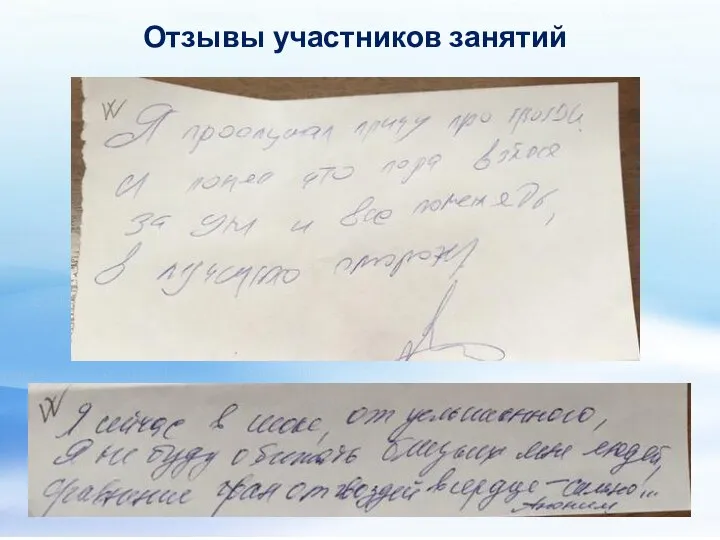 Отзывы участников занятий
W
Я прослушал притчу про гвозди
и понял что пора взться
за ум и все поменять,
в лучшую сторону
W
Я сейчас в шоке, от услышанного,
Я не буду обижать близких мне людей,
сравнение ран от гвоздей в сердце - сильно...
Аноним